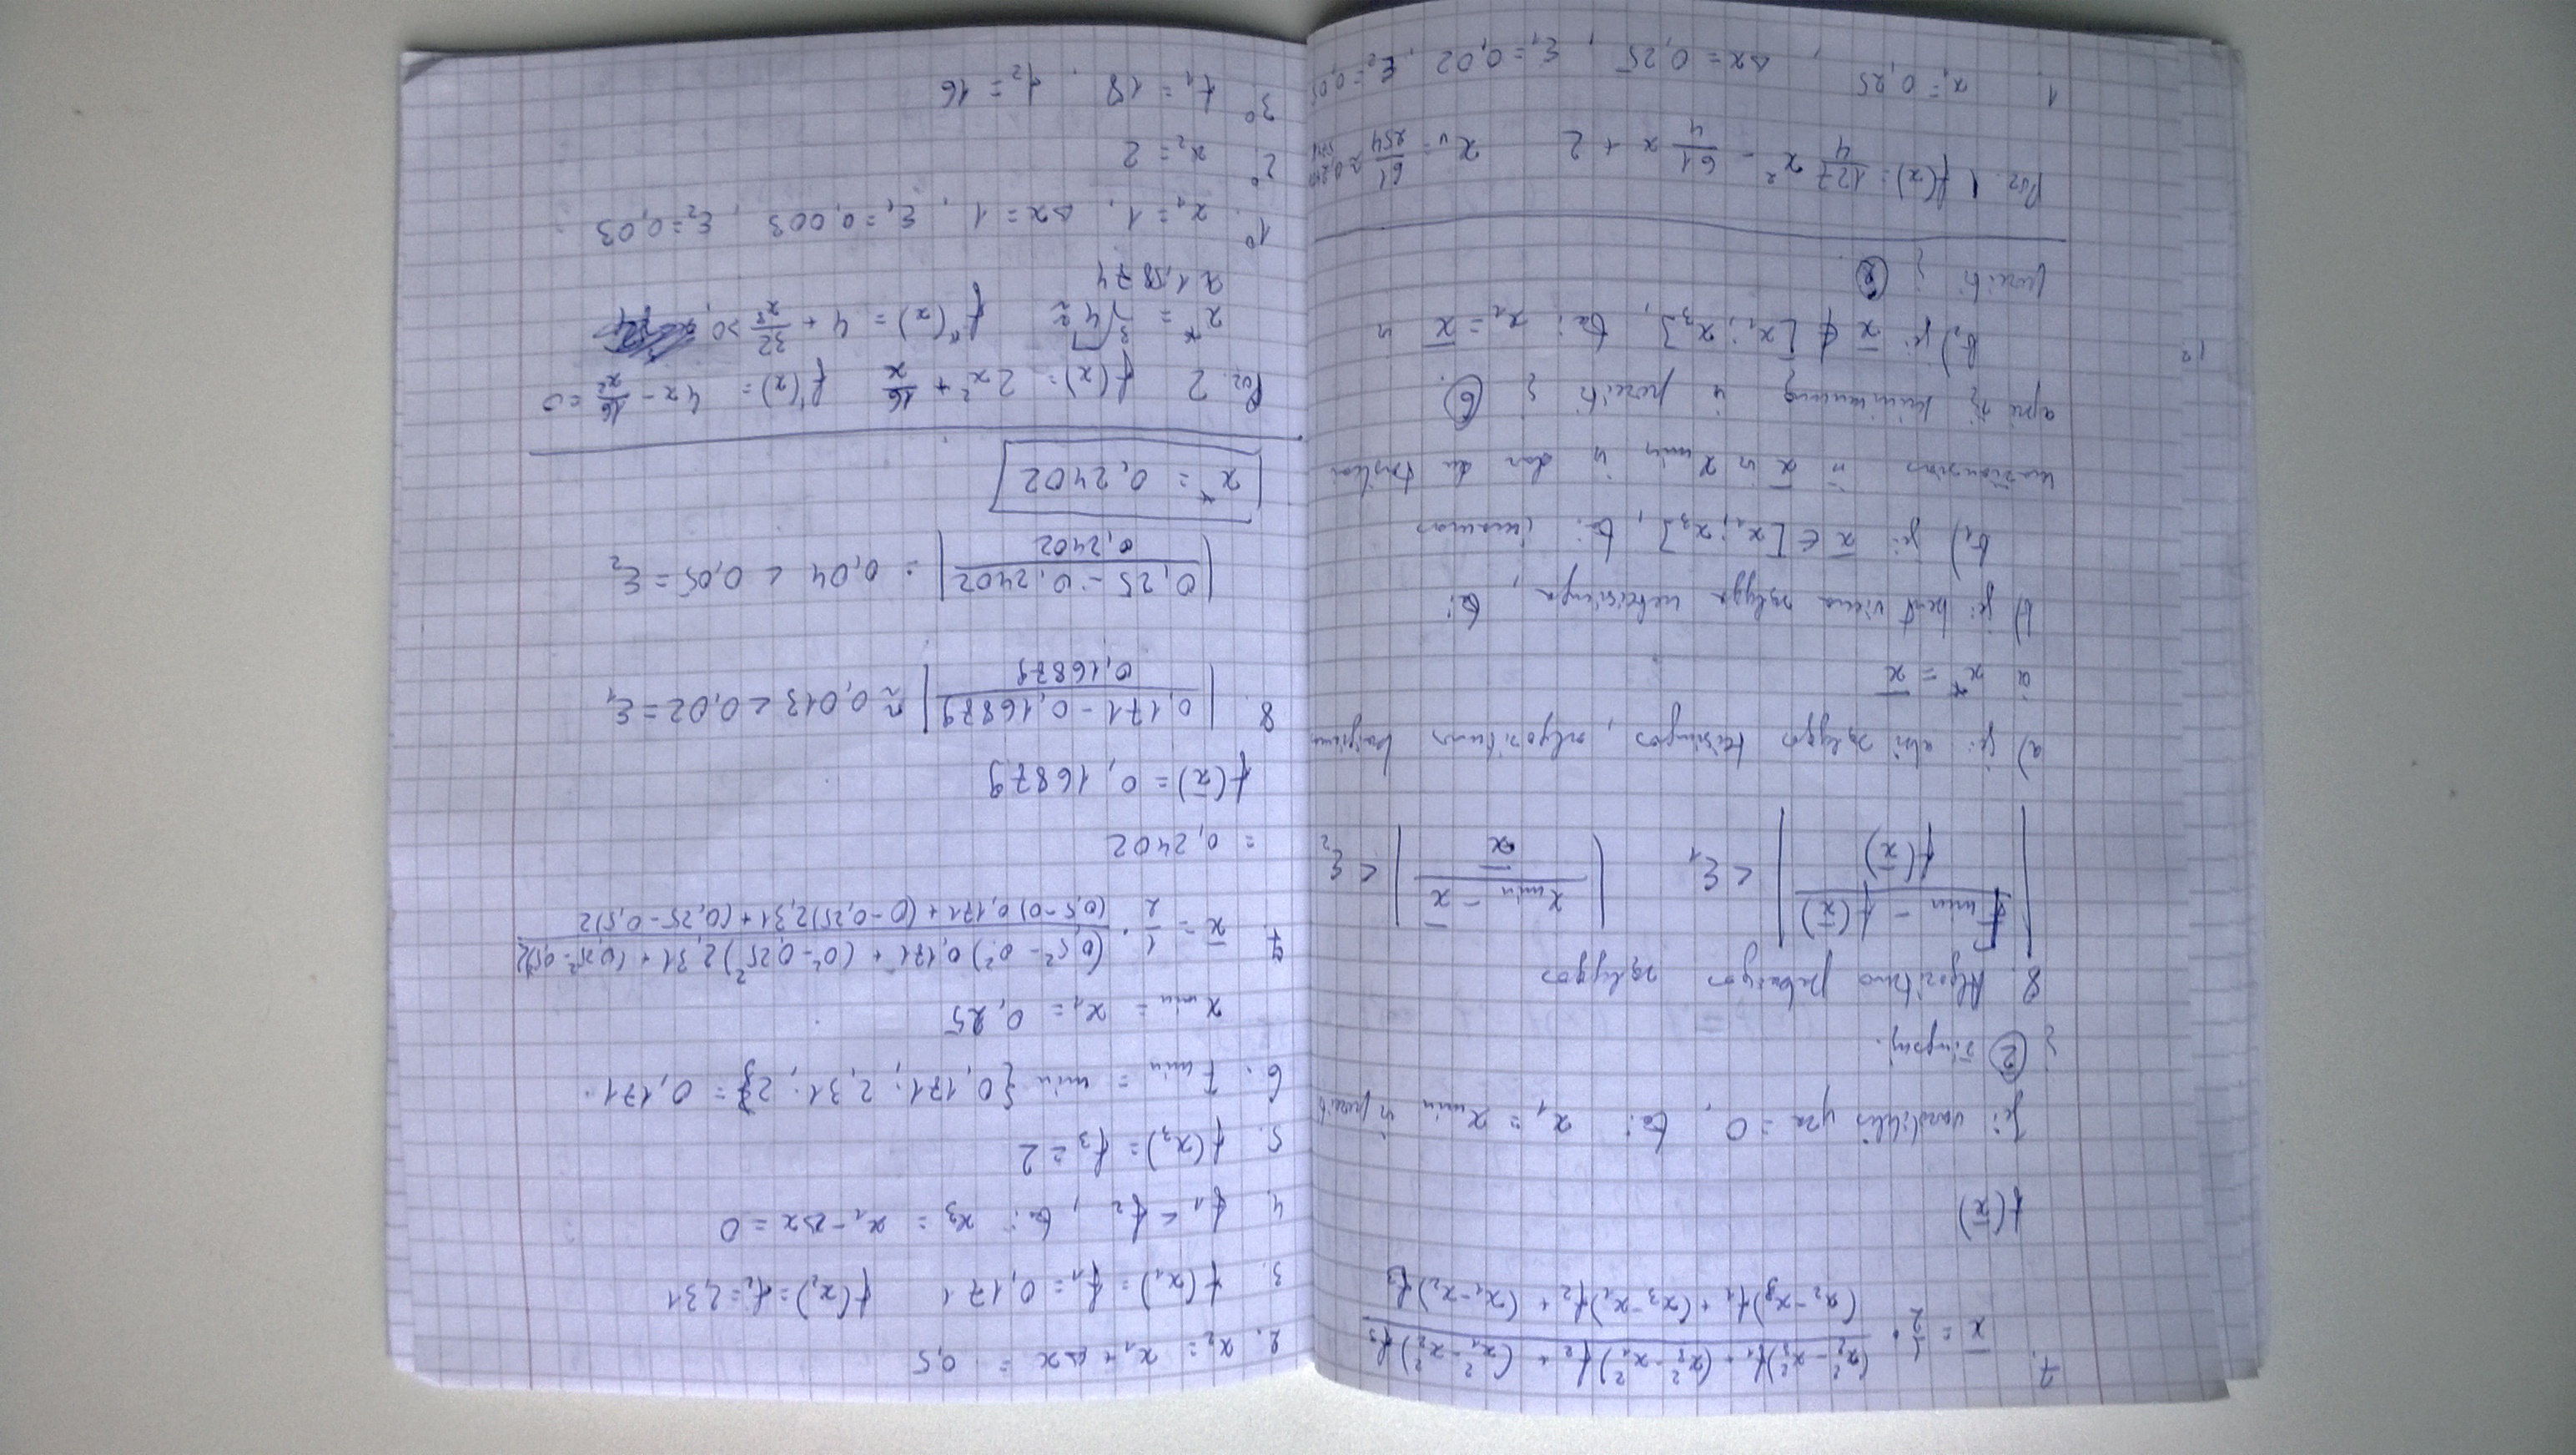 7. x̄ = 1/2 · ((x₂² - x₃²)f₁ + (x₃² - x₁²)f₂ + (x₁² - x₂²)f₃) / ((x₂ - x₃)f₁ + (x₃ - x₁)f₂ + (x₁ - x₂)f₃)
f(x̄)
Jei vardiklis yra = 0, tai x₁ = x_min ir pereiti
į ② žingsnį.
8. Algoritmo pabaigos sąlygos
|(F_min - f(x̄)) / f(x̄)| < ε₁ |(x_min - x̄) / x̄| < ε₂
a) jei abi sąlygos teisingos, algoritmas baigiamas
ir x* = x̄
b) jei bent viena sąlyga neteisinga, tai
b₁) jei x̄ ∈ [x₁; x₃], tai imamas
mažiausias iš x̄ ir x_min ir dar du taškai
apie šį minimumą ir pereiti į ⑥.
b₂) jei x̄ ∉ [x₁; x₃], tai x₁ = x̄ ir
pereiti į ②.
Pvz. 1 f(x) = 127/4 x² - 61/4 x + 2 x_v = 61/254 ≈
1. x₁ = 0,25, Δx = 0,25, ε₁ = 0,02, ε₂ = 0,05
2. x₂ = x₁ + Δx = 0,5
3. f(x₁) = f₁ = 0,171 f(x₂) = f₂ = 2,31
4. f₁ < f₂, tai x₃ = x₁ - Δx = 0
5. f(x₃) = f₃ = 2
6. F_min = min {0,171; 2,31; 2} = 0,171.
x_min = x₁ = 0,25
7. x̄ = 1/2 · ((0,5² - 0²) 0,171 + (0² - 0,25²) 2,31 + (0,25² - 0,5²)2) / ((0,5 - 0) 0,171 + (0 - 0,25) 2,31 + (0,25 - 0,5)2)
= 0,2402
f(x̄) = 0,16879
8. |(0,171 - 0,16879) / 0,16879| ≈ 0,013 < 0,02 = ε₁
|(0,25 - 0,2402) / 0,2402| = 0,04 < 0,05 = ε₂
x* = 0,2402
Pvz. 2 f(x) = 2x² + 16/x f'(x) = 4x - 16/x² = 0
x* = ∛4 ≈ f"(x) = 4 + 32/x³ > 0,
≈ 1,5874
1⁰. x₁ = 1, Δx = 1, ε₁ = 0,003, ε₂ = 0,03
2⁰ x₂ = 2
3⁰ f₁ = 18, f₂ = 16